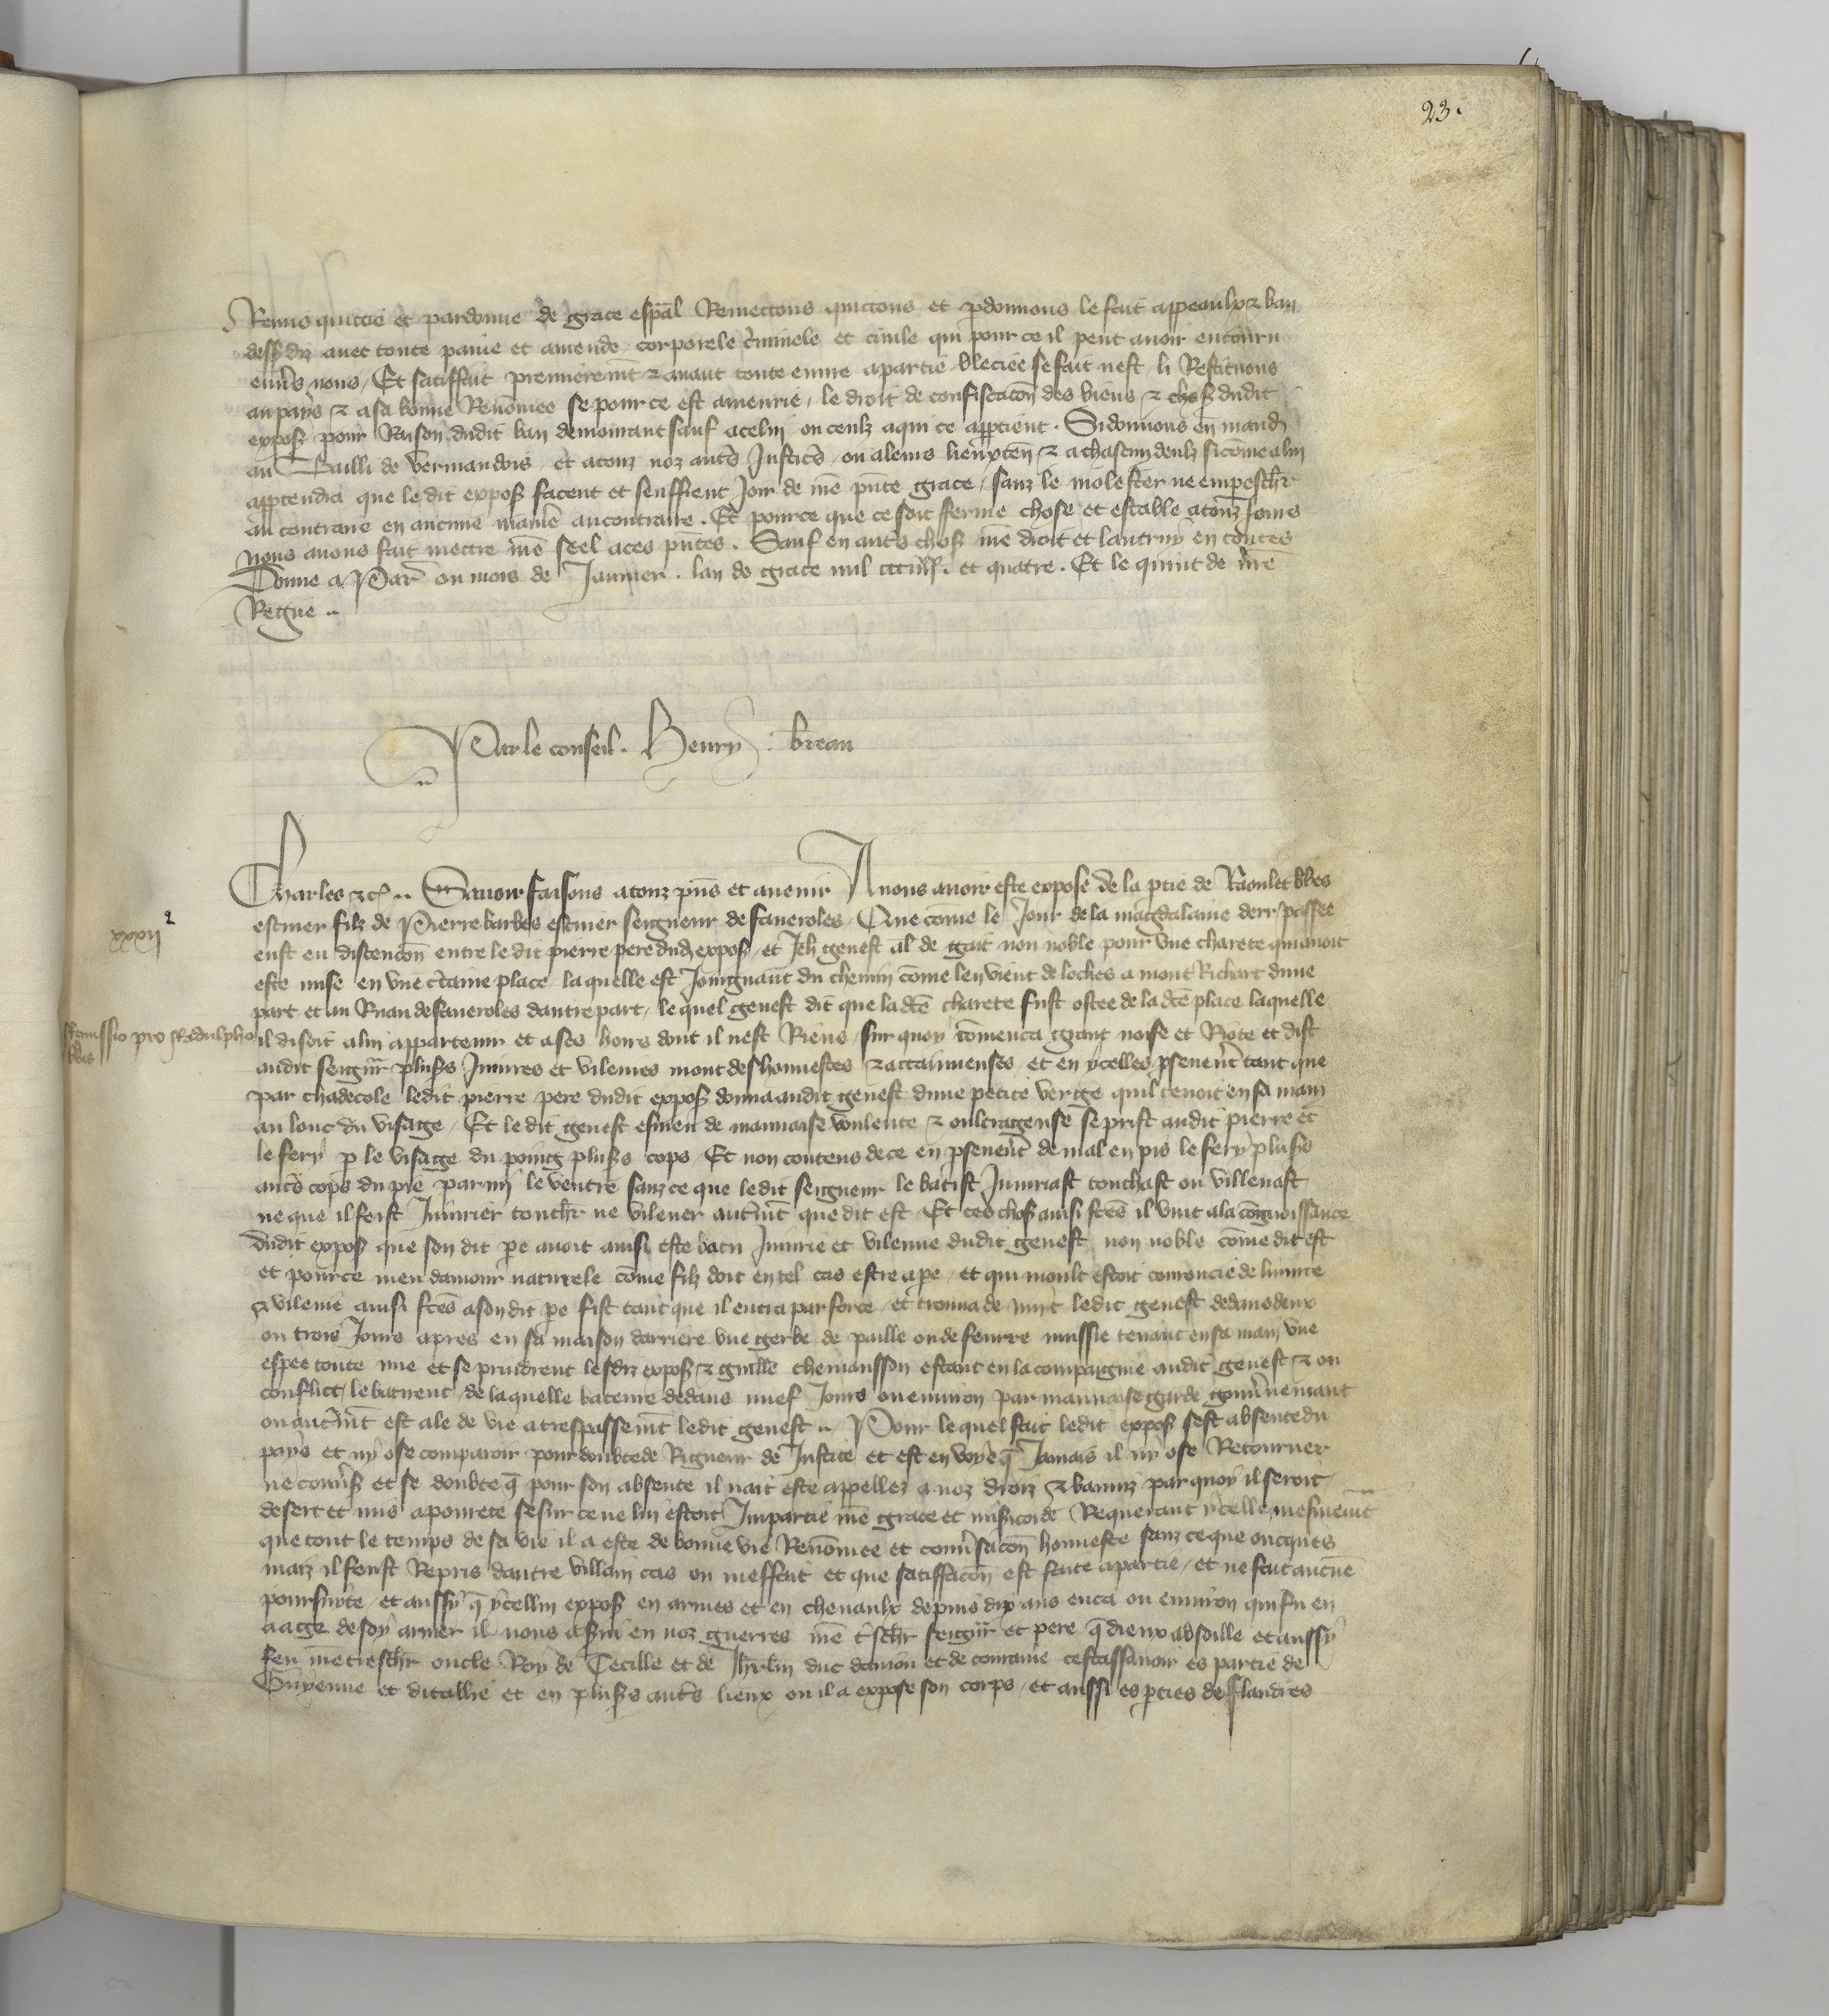 23.
Remis quictié et pardonné de grace espãl Remectons quictons et pdonnons le fait appeaulx & ban
dessdiz avec toute paine et amende corporele criminele et civile qui pour ce il peut avoir encouru
envs nous / Et satiffait premieremt & avant toute euvre a partie bleciée se fait nest / li Restituons
au pays & a sa bonne Renomee se pour ce est amenrie / le droit de confiscacon des biens & choss dudit
exposs pour Raison dudit ban demourant sauf a celui ou ceulz a qui ce apptient . Si donnons en mandt
au Bailli de Vermandois et a touz noz autres Justiciers ou a leurs lieuxten & a chascun deulz si come a lui
apptendra que le dit exposs facent et seuffrent Joir de nre pnte grace / sanz le molester ne empeschr
au contraire en aucune maniere au contraire . Et pour ce que ce soit ferme chose et estable a touz Jours
nous avons fait mectre nre seel a ces pntes . Sauf en autres choss nre droit et lautruy en toutes
Donne a Par ou mois de Janvier . lan de grace mil ccc iiijxx et quatre . Et le quint de nre
Regne ..
Par le conseil . Henry . breau
Charles &c .. Savoir faisons a touz pns et avenir A nous avoir este expose de la ptie de Raoulet bbes
xxxij
escuier filz de Pierre barbes escuier seigneur de faveroles / Que come le Jour de la magdalaine derr passee
eust eu discencon entre le dit pierre pere dudt exposs et Jeh genest al de gait non noble pour une charete qui avoit
este mise en une ctaine place la quelle est Joingnant du chemin come len vient de loches a mont Richart dune
part et au Ruau de faveroles dautre part / le quel genest dit que la dce charete fust ostee de la dce place laquelle
Remissio pro Radulpho
bbes
il disoit a lui appartenir et a ses hoirs dont il nest Riens / sur quoy comenca grant noise et Riote et dist
audit seignr plusrs Injures et vilenies mout deshonnestes & actaineuses et en ycelles psevert tant que
par chadecole ledit pierre pere dudit exposs donna audit genest dune petite verge quil tenoit en sa main
au lonc du visage / Et le dit genest esmeu de mauvaise voulente & oultrageuse se prist audit pierre et
le fery p le visage du poing plusrs cops Et non contens de ce en psevert de mal en pis le fery plusrs
autres cops du pie parmy le ventre sanz ce que ledit seigneur le batist Injuriast touchast ou villenast
ne que il feist Injurier touchr ne vilener autremt que dit est / Et ces choss ainsi fctes il vint a la congnoissance
dudit exposs que son dit pe avoit ainsi este batu Injurie et vilenne dudit genest non noble come dit est
et pour ce meu damour naturele come filz doit en tel cas estre a pe / et qui moult estoit courroucie de linjure
& vilenie ainsi fctes a son dit pe fist tant que il entra par force / et trouva de nuyt ledit genest dedans deux
ou trois Jours apres en sa maison darriere une gerbe de paille ou de feurre mussie tenant en sa main une
espee toute nue et se prindrent lesdiz exposs & guille chemansson estant en la compaignie audit genest & ou
conflict / le batirent / de la quelle bateure dedans nuef Jours ou environ par mauvaise garde gouvernemant
ou autremt est ale de vie a trespassemt ledit genest .. Pour le quel fait ledit exposs sest absente du
pays et ny ose comparoir pour doubte de Rigueur de Justice et est en voye q Jamais il ny ose Retourner
ne convs et se doubte q pour son absence il nait este appellez a noz droiz & banniz par quoy il seroit
desert et mis a pourete se sur ce ne lui estoit Impartie nre grace et misicorde Requerant ycelle / mesmemt
que tout le temps de sa vie il a este de bonne vie Renomee et conversacon honneste sanz ce que oncques
maiz il feust Repris dautre villain cas ou meffait et que satiffacon est faite a partie / et ne scut aucune
poursuyte / et aussy q ycellui exposs en armes et en chevaulx depuis dix ans enca ou environ qui fu en
aage de soy armer il nous a servi en noz guerres nre tschr seignr et pere q dieux absoille et aussy
feu nre treschr oncle Roy de Cecille et de Jhrlm duc danjou et de touraine cestassavoir es partie de
Guyenne et ditallie et en plusrs autres lieux ou il a expose son corps / et aussi es pties de flandres